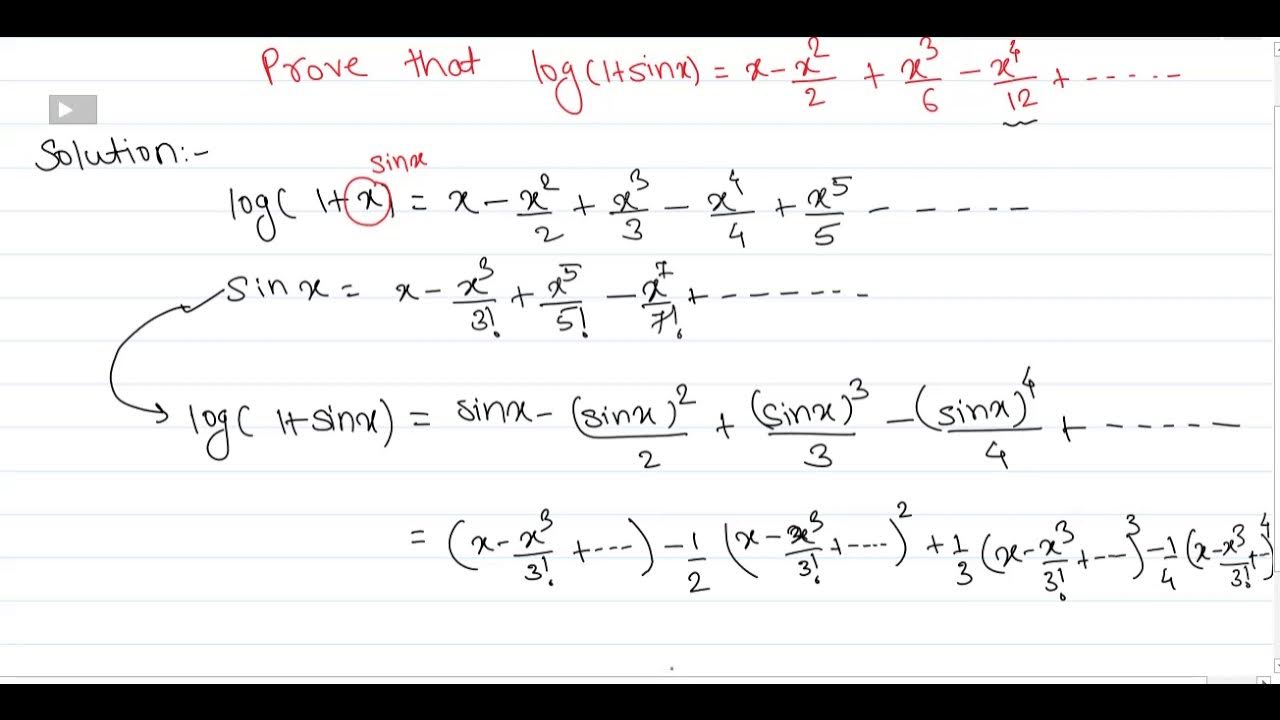 Prove that log(1+sinx) = x - x²/2 + x³/6 - x⁴/12 + -----
Solution:-
sinx
log(1+x) = x - x²/2 + x³/3 - x⁴/4 + x⁵/5 - - - - -
sinx = x - x³/3! + x⁵/5! - x⁷/7! + -------
log(1+sinx) = sinx - (sinx)²/2 + (sinx)³/3 - (sinx)⁴/4 + -----
= (x - x³/3! + ---) - 1/2 (x - x³/3! + ----)² + 1/3 (x - x³/3! + ---)³ - 1/4 (x - x³/3! + --)⁴